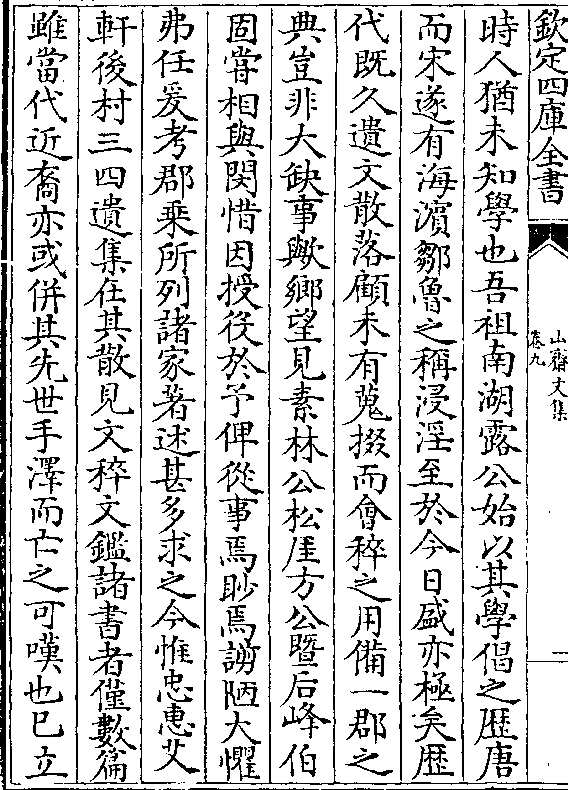 欽定四庫全書
山齋文集
卷九
一
時人猶未知學也吾祖南湖露公始以其學倡之歴唐
而宋遂有海濵鄒魯之稱浸淫至於今日盛亦極矣歴
代既久遺文散落顧未有蒐掇而會稡之用備一郡之
典豈非大缺事歟鄉望見素林公松厓方公暨后峰伯
固甞相與閔惜因授役於予俾從事焉眇焉謭陋大懼
弗任爰考郡乘所列諸家著述甚多求之今惟忠惠艾
軒後村三四遺集在其散見文稡文鑑諸書者僅數篇
雖當代近裔亦或併其先世手澤而亡之可嘆也已立